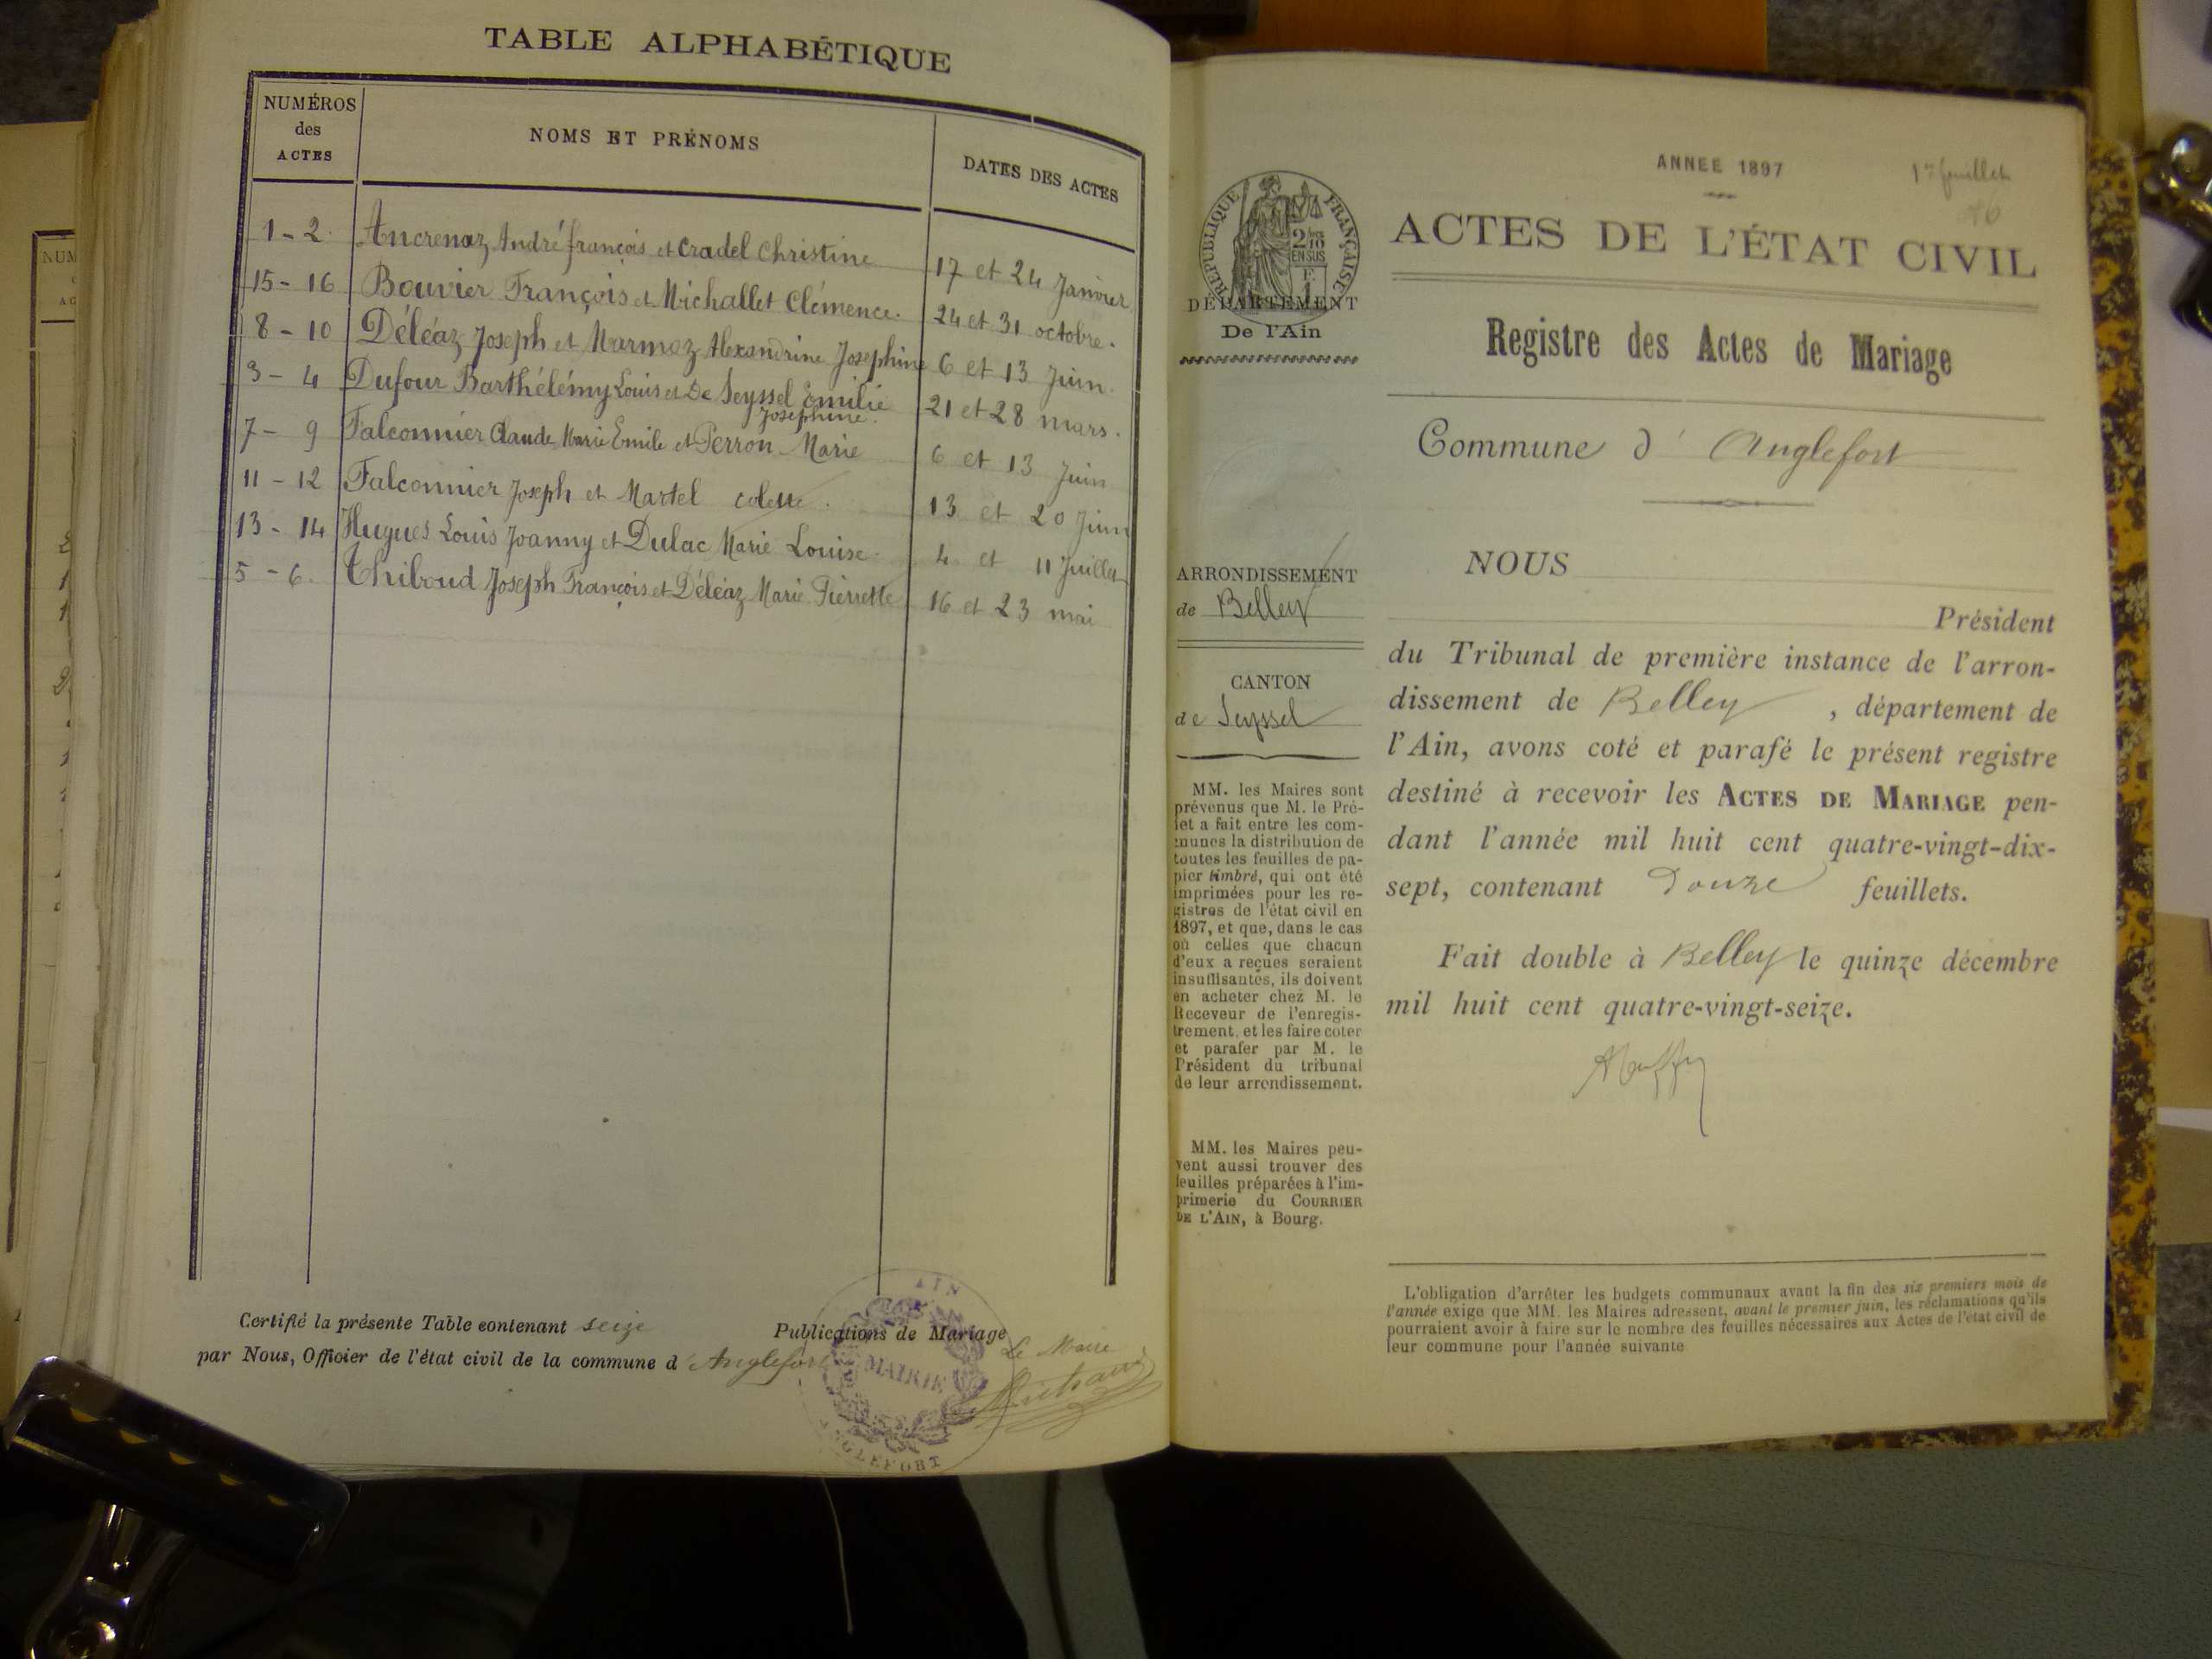 TABLE ALPHABÉTIQUE
NUMÉROS
des
ACTES
NOMS ET PRÉNOMS
DATES DES ACTES
1 - 2 Ancrenaz André françois et Cradel Christine 17 et 24 Janvier
15 - 16 Bouvier François et Michallet Clémence. 24 et 31 octobre.
8 - 10 Déléaz Joseph et Marmoz Alexandrine Josephine 6 et 13 Juin.
3 - 4 Dufour Barthélémy Louis et De Seyssel Emilie 21 et 28 mars.
Josephine.
7 - 9 Falconnier Claude Marie Emile et Perron Marie 6 et 13 Juin
11 - 12 Falconnier Joseph et Martel Colette. 13 et 20 Juin
13 - 14 Hugues Louis Joanny et Dulac Marie Louise. 4 et 11 Juillet
5 - 6. Thiboud Joseph François et Déléaz Marie Pierrette 16 et 23 mai
Certifié la présente Table contenant seize Publications de Mariage
par Nous, Officier de l'état civil de la commune d'Anglefort
Le Maire
AIN
MAIRIE
ANGLEFORT
NUM
ANNEE 1897
1er feuillet
ACTES DE L'ÉTAT CIVIL
Registre des Actes de Mariage
Commune d' Anglefort
RÉPUBLIQUE FRANÇAISE
2/10
EN SUS
DÉPARTEMENT
De l'Ain
ARRONDISSEMENT
de Belley
CANTON
de Seyssel
MM. les Maires sont
prévenus que M. le Pré-
fet a fait entre les com-
munes la distribution de
toutes les feuilles de pa-
pier timbré, qui ont été
imprimées pour les re-
gistres de l'état civil en
1897, et que, dans le cas
où celles que chacun
d'eux a reçues seraient
insuffisantes, ils doivent
en acheter chez M. le
Receveur de l'enregis-
trement, et les faire coter
et parafer par M. le
Président du tribunal
de leur arrondissement.
MM. les Maires peu-
vent aussi trouver des
feuilles préparées à l'im-
primerie du COURRIER
DE L'AIN, à Bourg.
NOUS
Président
du Tribunal de première instance de l'arron-
dissement de Belley, département de
l'Ain, avons coté et parafé le présent registre
destiné à recevoir les ACTES DE MARIAGE pen-
dant l'année mil huit cent quatre-vingt-dix-
sept, contenant Douze feuillets.
Fait double à Belley le quinze décembre
mil huit cent quatre-vingt-seize.
L'obligation d'arrêter les budgets communaux avant la fin des six premiers mois de
l'année exige que MM. les Maires adressent, avant le premier juin, les réclamations qu'ils
pourraient avoir à faire sur le nombre des feuilles nécessaires aux Actes de l'état civil de
leur commune pour l'année suivante